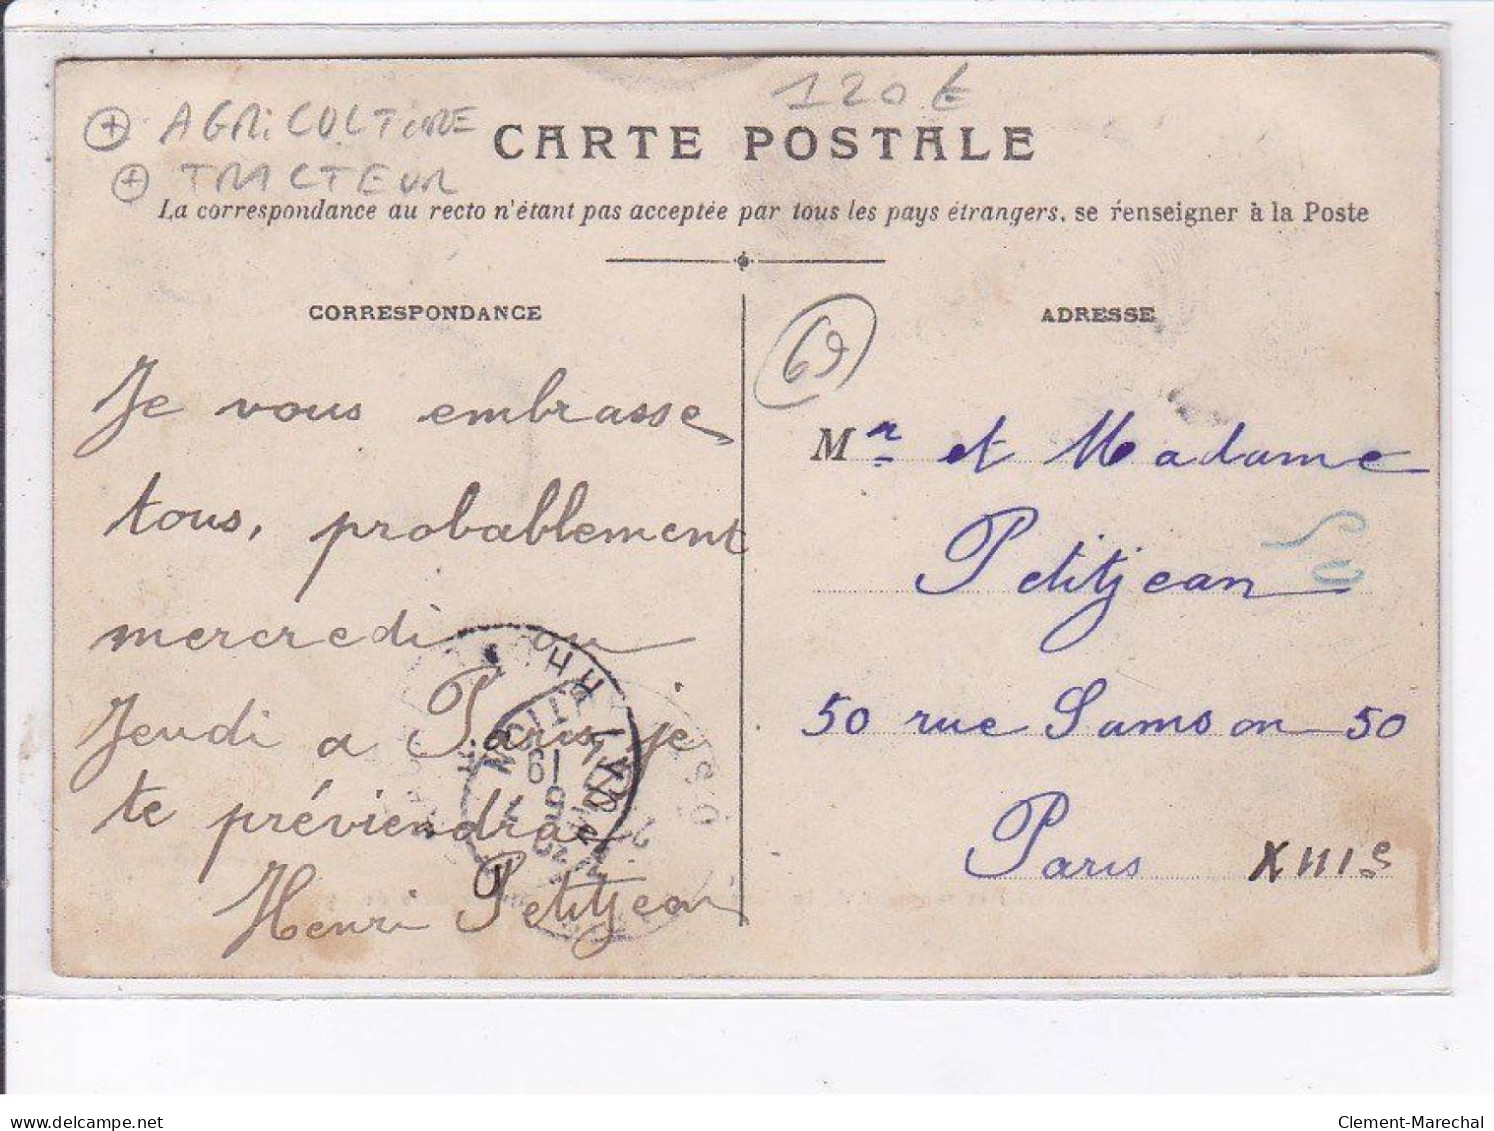 + AGRICULTURE
+ TRACTEUR
120 €
CARTE POSTALE
La correspondance au recto n'étant pas acceptée par tous les pays étrangers, se renseigner à la Poste
CORRESPONDANCE
Je vous embrasse
tous, probablement
mercredi ou
Jeudi a Paris, je
te préviendrai
Henri Petitjean
69
ADRESSE
Mr et Madame
Petitjean
50 rue Samson 50
Paris XIIIe
www.delcampe.net
Clement-Marechal